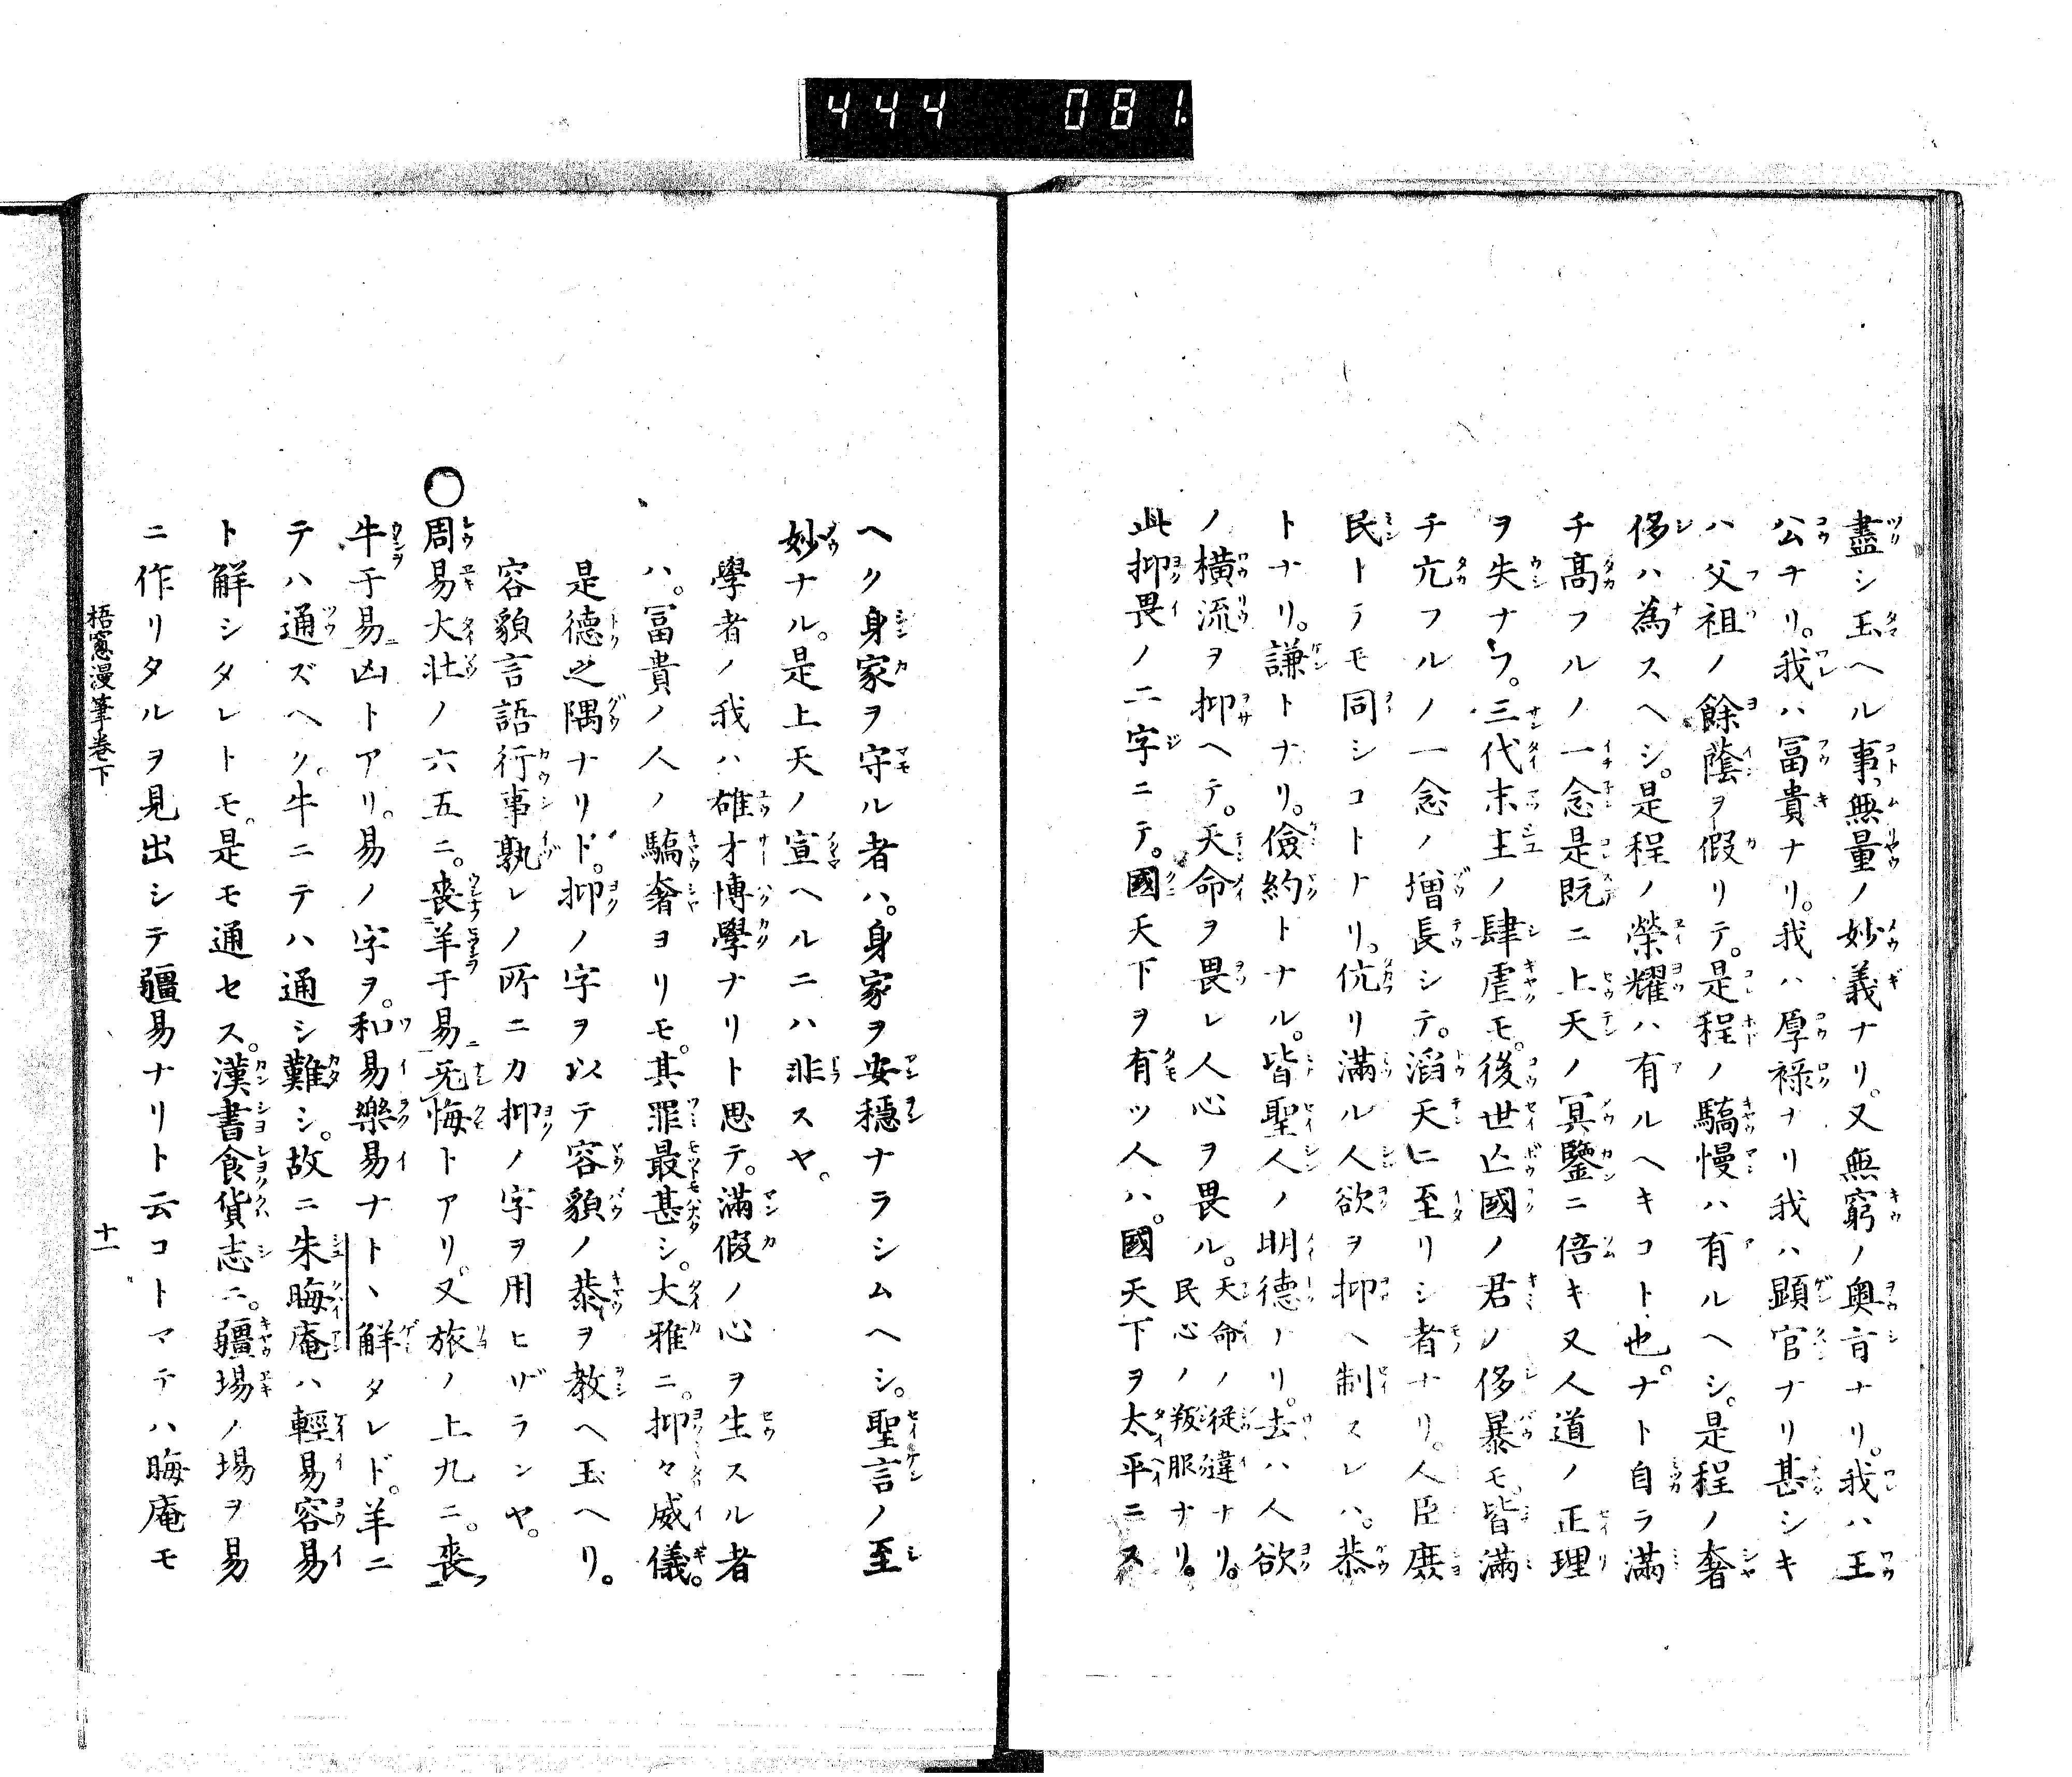 444 081
盡シ玉ヘル事無量ノ妙義ナリ。又無窮ノ奥旨ナリ。我ハ王
公ナリ。我ハ冨貴ナリ。我ハ厚祿ナリ我ハ顕官ナリ甚シキ
ハ父祖ノ餘蔭ヲ假リテ。是程ノ驕慢ハ有ルヘシ。是程ノ奢
侈ハ為スヘシ。是程ノ榮耀ハ有ルヘキコト也。ナト自ラ滿
チ髙フルノ一念是既ニ上天ノ冥鑒ニ倍キ又人道ノ正理
ヲ失ナフ。三代末主ノ肆虐モ。後世亡國ノ君ノ侈暴モ。皆滿
チ亢フルノ一念ノ増長シテ。滔天ニ至リシ者ナリ。人臣庶
民トテモ同シコトナリ。伉リ滿ル人欲ヲ抑ヘ制スレハ。恭
トナリ。謙トナリ。儉約トナル。皆聖人ノ明德ナリ。去ハ人欲
ノ横流ヲ抑ヘテ。天命ヲ畏レ人心ヲ畏ル。天命ノ従違ナリ。
民心ノ叛服ナリ。
此抑畏ノ二字ニテ。國天下ヲ有ツ人ハ。國天下ヲ太平ニス
ヘク身家ヲ守ル者ハ。身家ヲ安穩ナラシムヘシ。聖言ノ至
妙ナル。是上天ノ宣ヘルニハ非スヤ。
學者ノ我ハ雄才博學ナリト思テ。滿假ノ心ヲ生スル者
ハ。冨貴ノ人ノ驕奢ヨリモ。其罪最甚シ。大雅ニ。抑々威儀。
是德之隅ナリド。抑ノ字ヲ以テ容貌ノ恭ヲ教ヘ玉ヘリ。
容貌言語行事孰レノ所ニカ抑ノ字ヲ用ヒザランヤ。
○周易大壯ノ六五ニ。喪羊于易无悔トアリ。又旅ノ上九ニ。喪
牛于易凶トアリ。易ノ字ヲ。和易樂易ナトヽ解タレド。羊ニ
テハ通ズヘク。牛ニテハ通シ難シ。故ニ朱晦庵ハ輕易容易
ト解シタレトモ。是モ通セス。漢書食貨志ニ。疆埸ノ埸ヲ易
ニ作リタルヲ見出シテ疆易ナリト云コトマテハ晦庵モ
梧窻漫筆巻下 十一